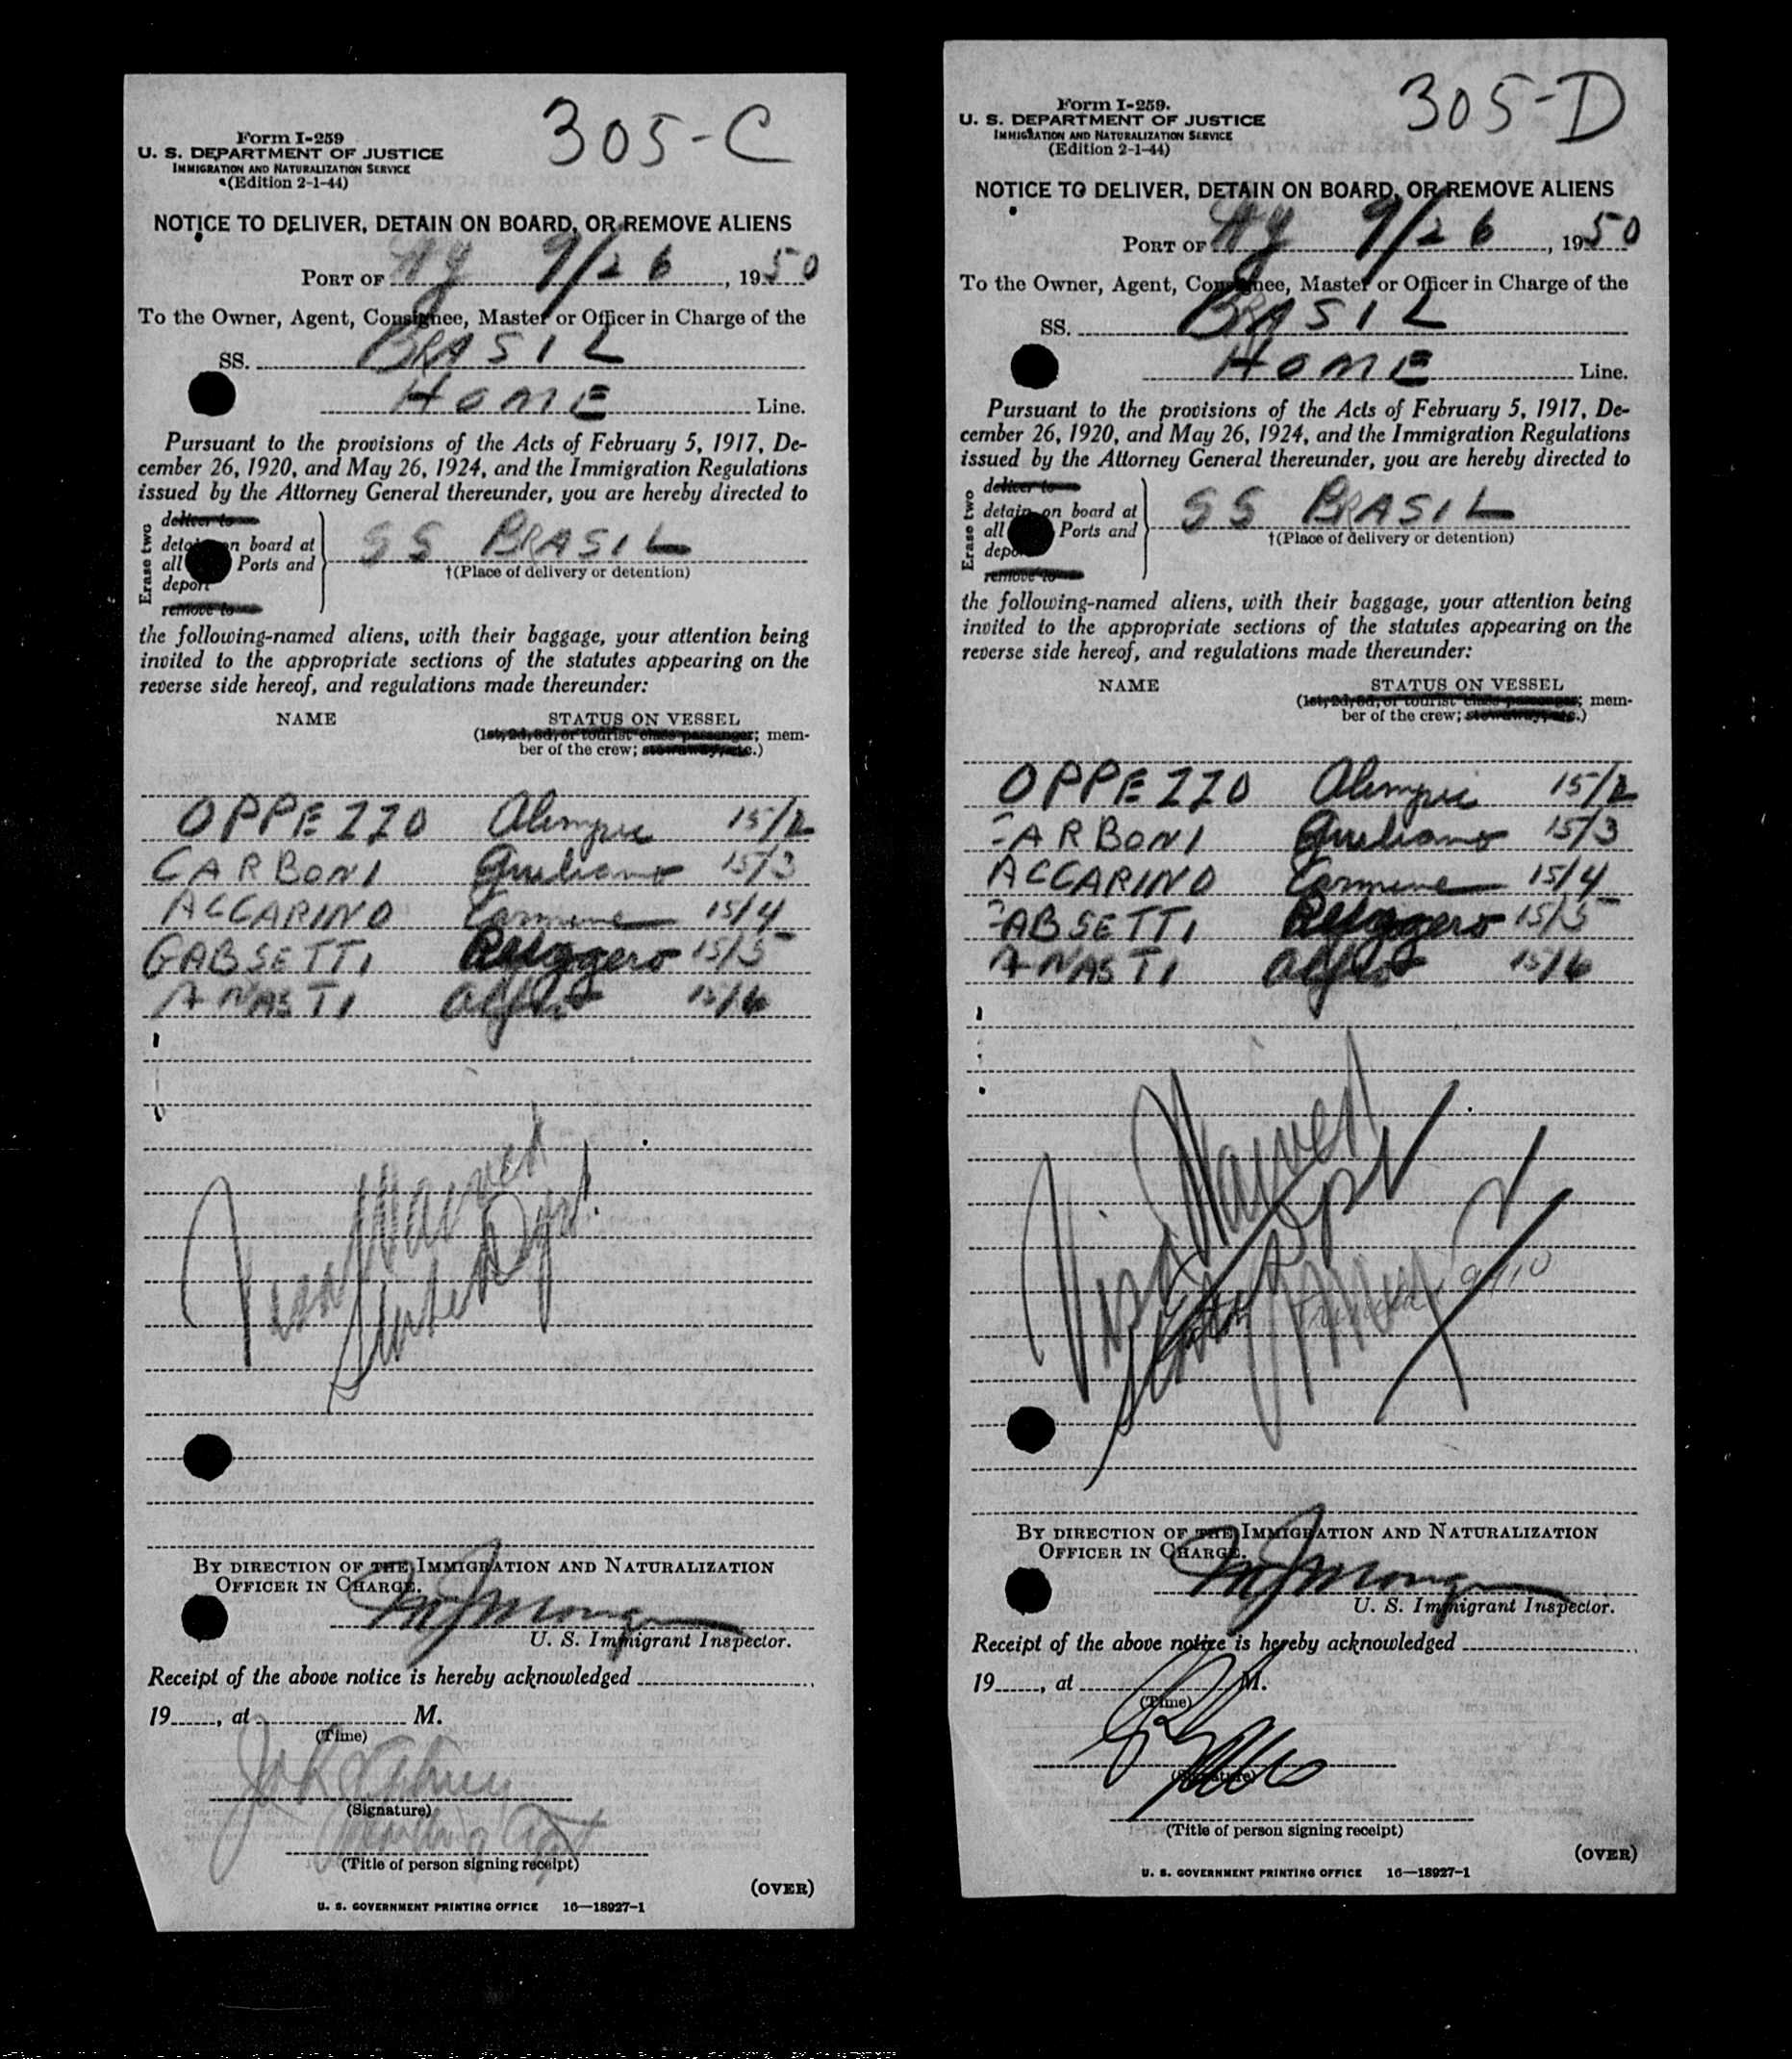 305-C
Form I-259
U. S. DEPARTMENT OF JUSTICE
IMMIGRATION AND NATURALIZATION SERVICE
(Edition 2-1-44)
NOTICE TO DELIVER, DETAIN ON BOARD, OR REMOVE ALIENS
PORT OF NY 9/26, 1950
To the Owner, Agent, Consignee, Master or Officer in Charge of the
SS. BRASIL
HOME Line.
Pursuant to the provisions of the Acts of February 5, 1917, De-
cember 26, 1920, and May 26, 1924, and the Immigration Regulations
issued by the Attorney General thereunder, you are hereby directed to
Erase two
deliver to
detain on board at
all Ports and
deport
remove to
SS BRASIL
†(Place of delivery or detention)
the following-named aliens, with their baggage, your attention being
invited to the appropriate sections of the statutes appearing on the
reverse side hereof, and regulations made thereunder:
NAME STATUS ON VESSEL
(1st, 2d, 3d, or tourist class passenger; mem-
ber of the crew; stowaway, etc.)
OPPEZZO Olimpio 15/2
CARBONI Giuliano 15/3
ACCARINO Carmine 15/4
GABSETTI Ruggero 15/5
ANASTI Alfio 15/6
Visa Waived
State Dept.
BY DIRECTION OF THE IMMIGRATION AND NATURALIZATION
OFFICER IN CHARGE.
U. S. Immigrant Inspector.
Receipt of the above notice is hereby acknowledged
19, at M.
(Time)
(Signature)
(Title of person signing receipt)
(OVER)
U. S. GOVERNMENT PRINTING OFFICE 16—18927-1
305-D
Form I-259.
U. S. DEPARTMENT OF JUSTICE
IMMIGRATION AND NATURALIZATION SERVICE
(Edition 2-1-44)
NOTICE TO DELIVER, DETAIN ON BOARD, OR REMOVE ALIENS
PORT OF NY 9/26, 1950
To the Owner, Agent, Consignee, Master or Officer in Charge of the
SS. BRASIL
HOME Line.
Pursuant to the provisions of the Acts of February 5, 1917, De-
cember 26, 1920, and May 26, 1924, and the Immigration Regulations
issued by the Attorney General thereunder, you are hereby directed to
Erase two
deliver to
detain on board at
all Ports and
deport
remove to
SS BRASIL
†(Place of delivery or detention)
the following-named aliens, with their baggage, your attention being
invited to the appropriate sections of the statutes appearing on the
reverse side hereof, and regulations made thereunder:
NAME STATUS ON VESSEL
(1st, 2d, 3d, or tourist class passenger; mem-
ber of the crew; stowaway, etc.)
OPPEZZO Olimpio 15/2
CARBONI Giuliano 15/3
ACCARINO Carmine 15/4
GABSETTI Ruggero 15/5
ANASTI Alfio 15/6
Visa Waived
State Dept
BY DIRECTION OF THE IMMIGRATION AND NATURALIZATION
OFFICER IN CHARGE.
U. S. Immigrant Inspector.
Receipt of the above notice is hereby acknowledged
19, at M.
(Time)
(Signature)
(Title of person signing receipt)
(OVER)
U. S. GOVERNMENT PRINTING OFFICE 16—18927-1